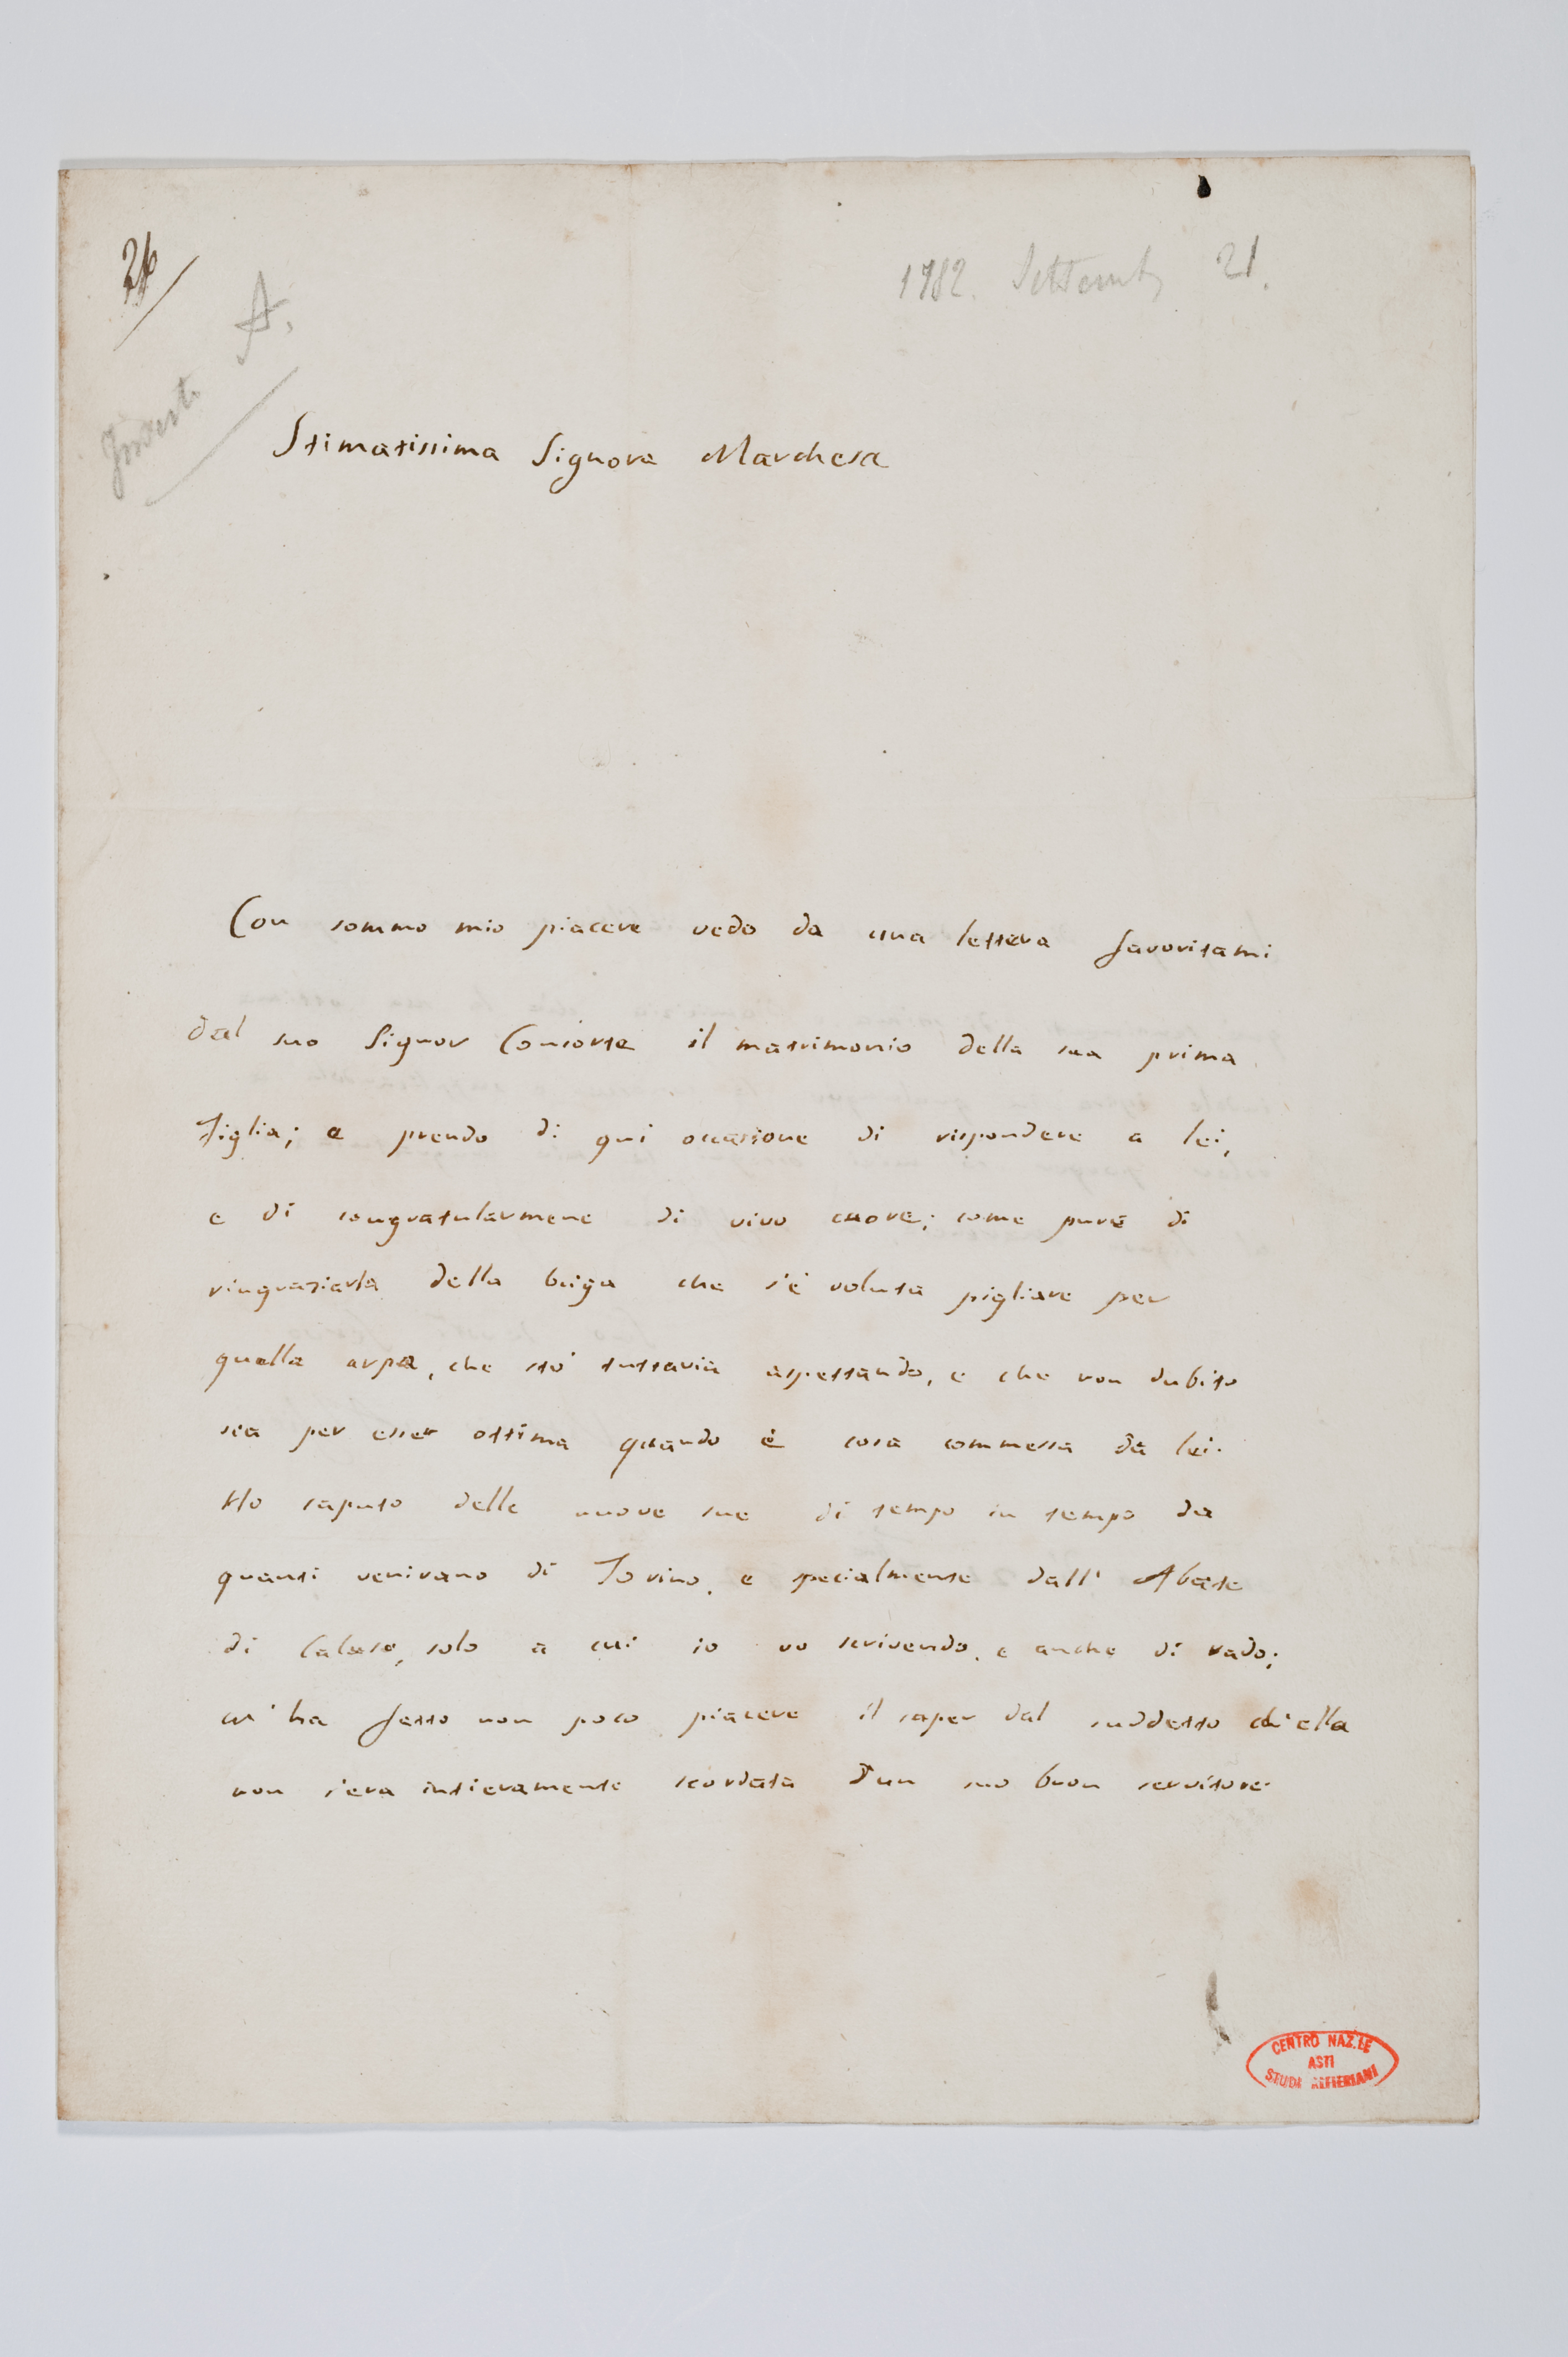 26
A.
Inserti
1782. Settemb 21.
Stimatissima Signora Marchesa
Con sommo mio piacere vedo da una lettera favoritami
dal suo Signor Consorte il matrimonio della sua prima
figlia; e prendo di qui occasione di rispondere a lei,
e di congratularmene di vivo cuore; come pure di
ringraziarla della briga che s'è voluta pigliare per
quella arpa, che stò tuttavia aspettando, e che non dubito
sia per esser ottima quando è cosa commessa da lei.
Ho saputo delle nuove sue di tempo in tempo da
quanti venivano di Torino, e specialmente dall' Abate
di Caluso, solo a cui io vo scrivendo, e anche di rado;
m'ha fatto non poco piacere il saper dal suddetto ch'ella
non s'era intieramente scordata d'un suo buon servitore.
CENTRO NAZ.LE
ASTI
STUDI ALFIERIANI